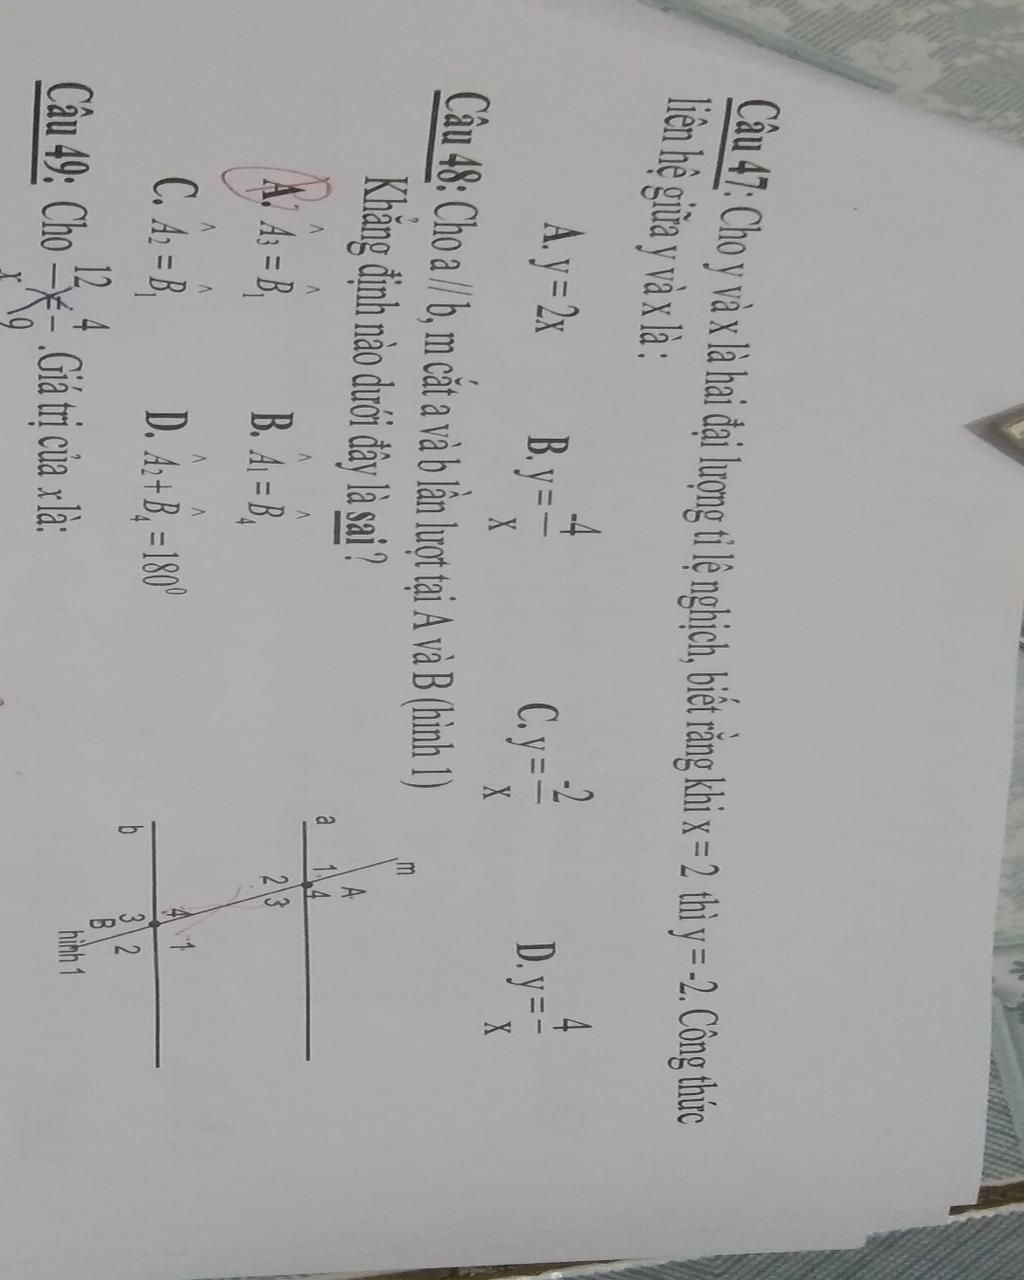 Câu 47: Cho y và x là hai đại lượng tỉ lệ nghịch, biết rằng khi x = 2 thì y = -2. Công thức
liên hệ giữa y và x là :
A. y = 2x B. y = -4/x C. y = -2/x D. y = 4/x
Câu 48: Cho a // b, m cắt a và b lần lượt tại A và B (hình 1)
Khẳng định nào dưới đây là sai ?
A. Â₃ = B̂₁ B. Â₁ = B̂₄
C. Â₂ = B̂₁ D. Â₂ + B̂₄ = 180⁰
m
a
1 A 4
2 3
4 1
b
3 2
B
hình 1
Câu 49: Cho 12/x = 4/9 .Giá trị của x là: